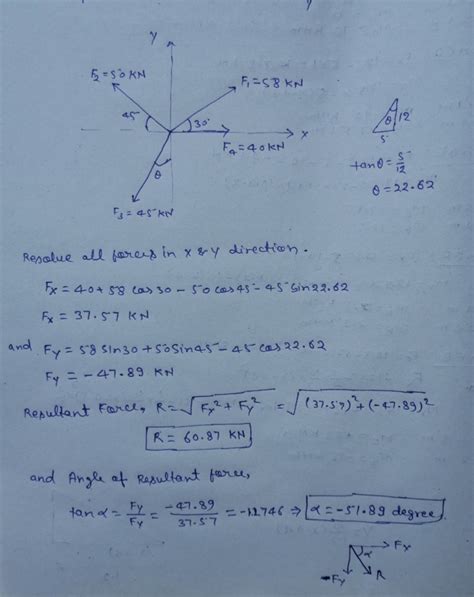 Y
F2=50 KN
F1=58 KN
45° 30°
X
F4=40KN
θ
F3=45 KN
θ 12
5
tanθ = 5/12
θ = 22.62°
Resolve all forces in X & Y direction.
Fx = 40+58 cos30 - 50 cos45 - 45 Sin22.62
Fx = 37.57 KN
and Fy = 58 Sin30 + 50 Sin45 - 45 cos 22.62
Fy = -47.89 KN
Resultant Force, R = √Fx² + Fy² = √(37.57)² + (-47.89)²
R = 60.87 KN
and Angle of Resultant force,
tan α = Fy/Fy = -47.89/37.57 = -1.2746 ⇒ α = -51.89 degree
Fx
α
-Fy R